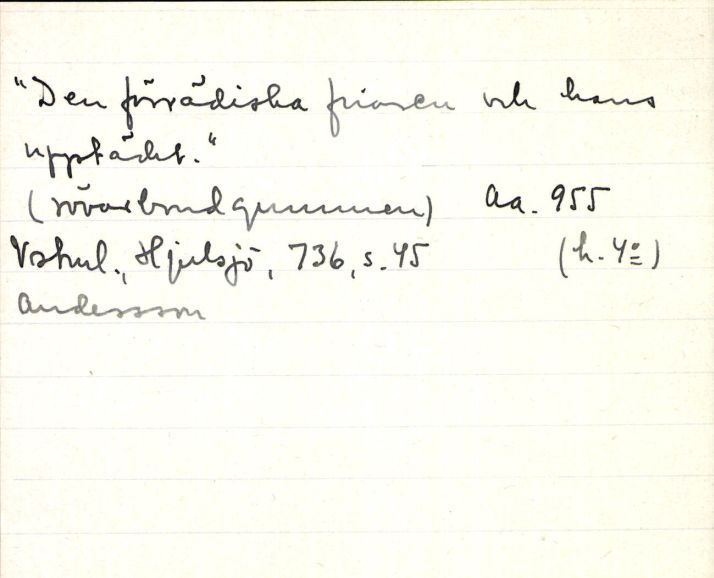 "Den förrädiska friaren och hans
upptäckt."
(rövarbrudgummen) Aa. 955
Vstml., Hjulsjö, 736, s. 45 (h. 4º)
Andersson